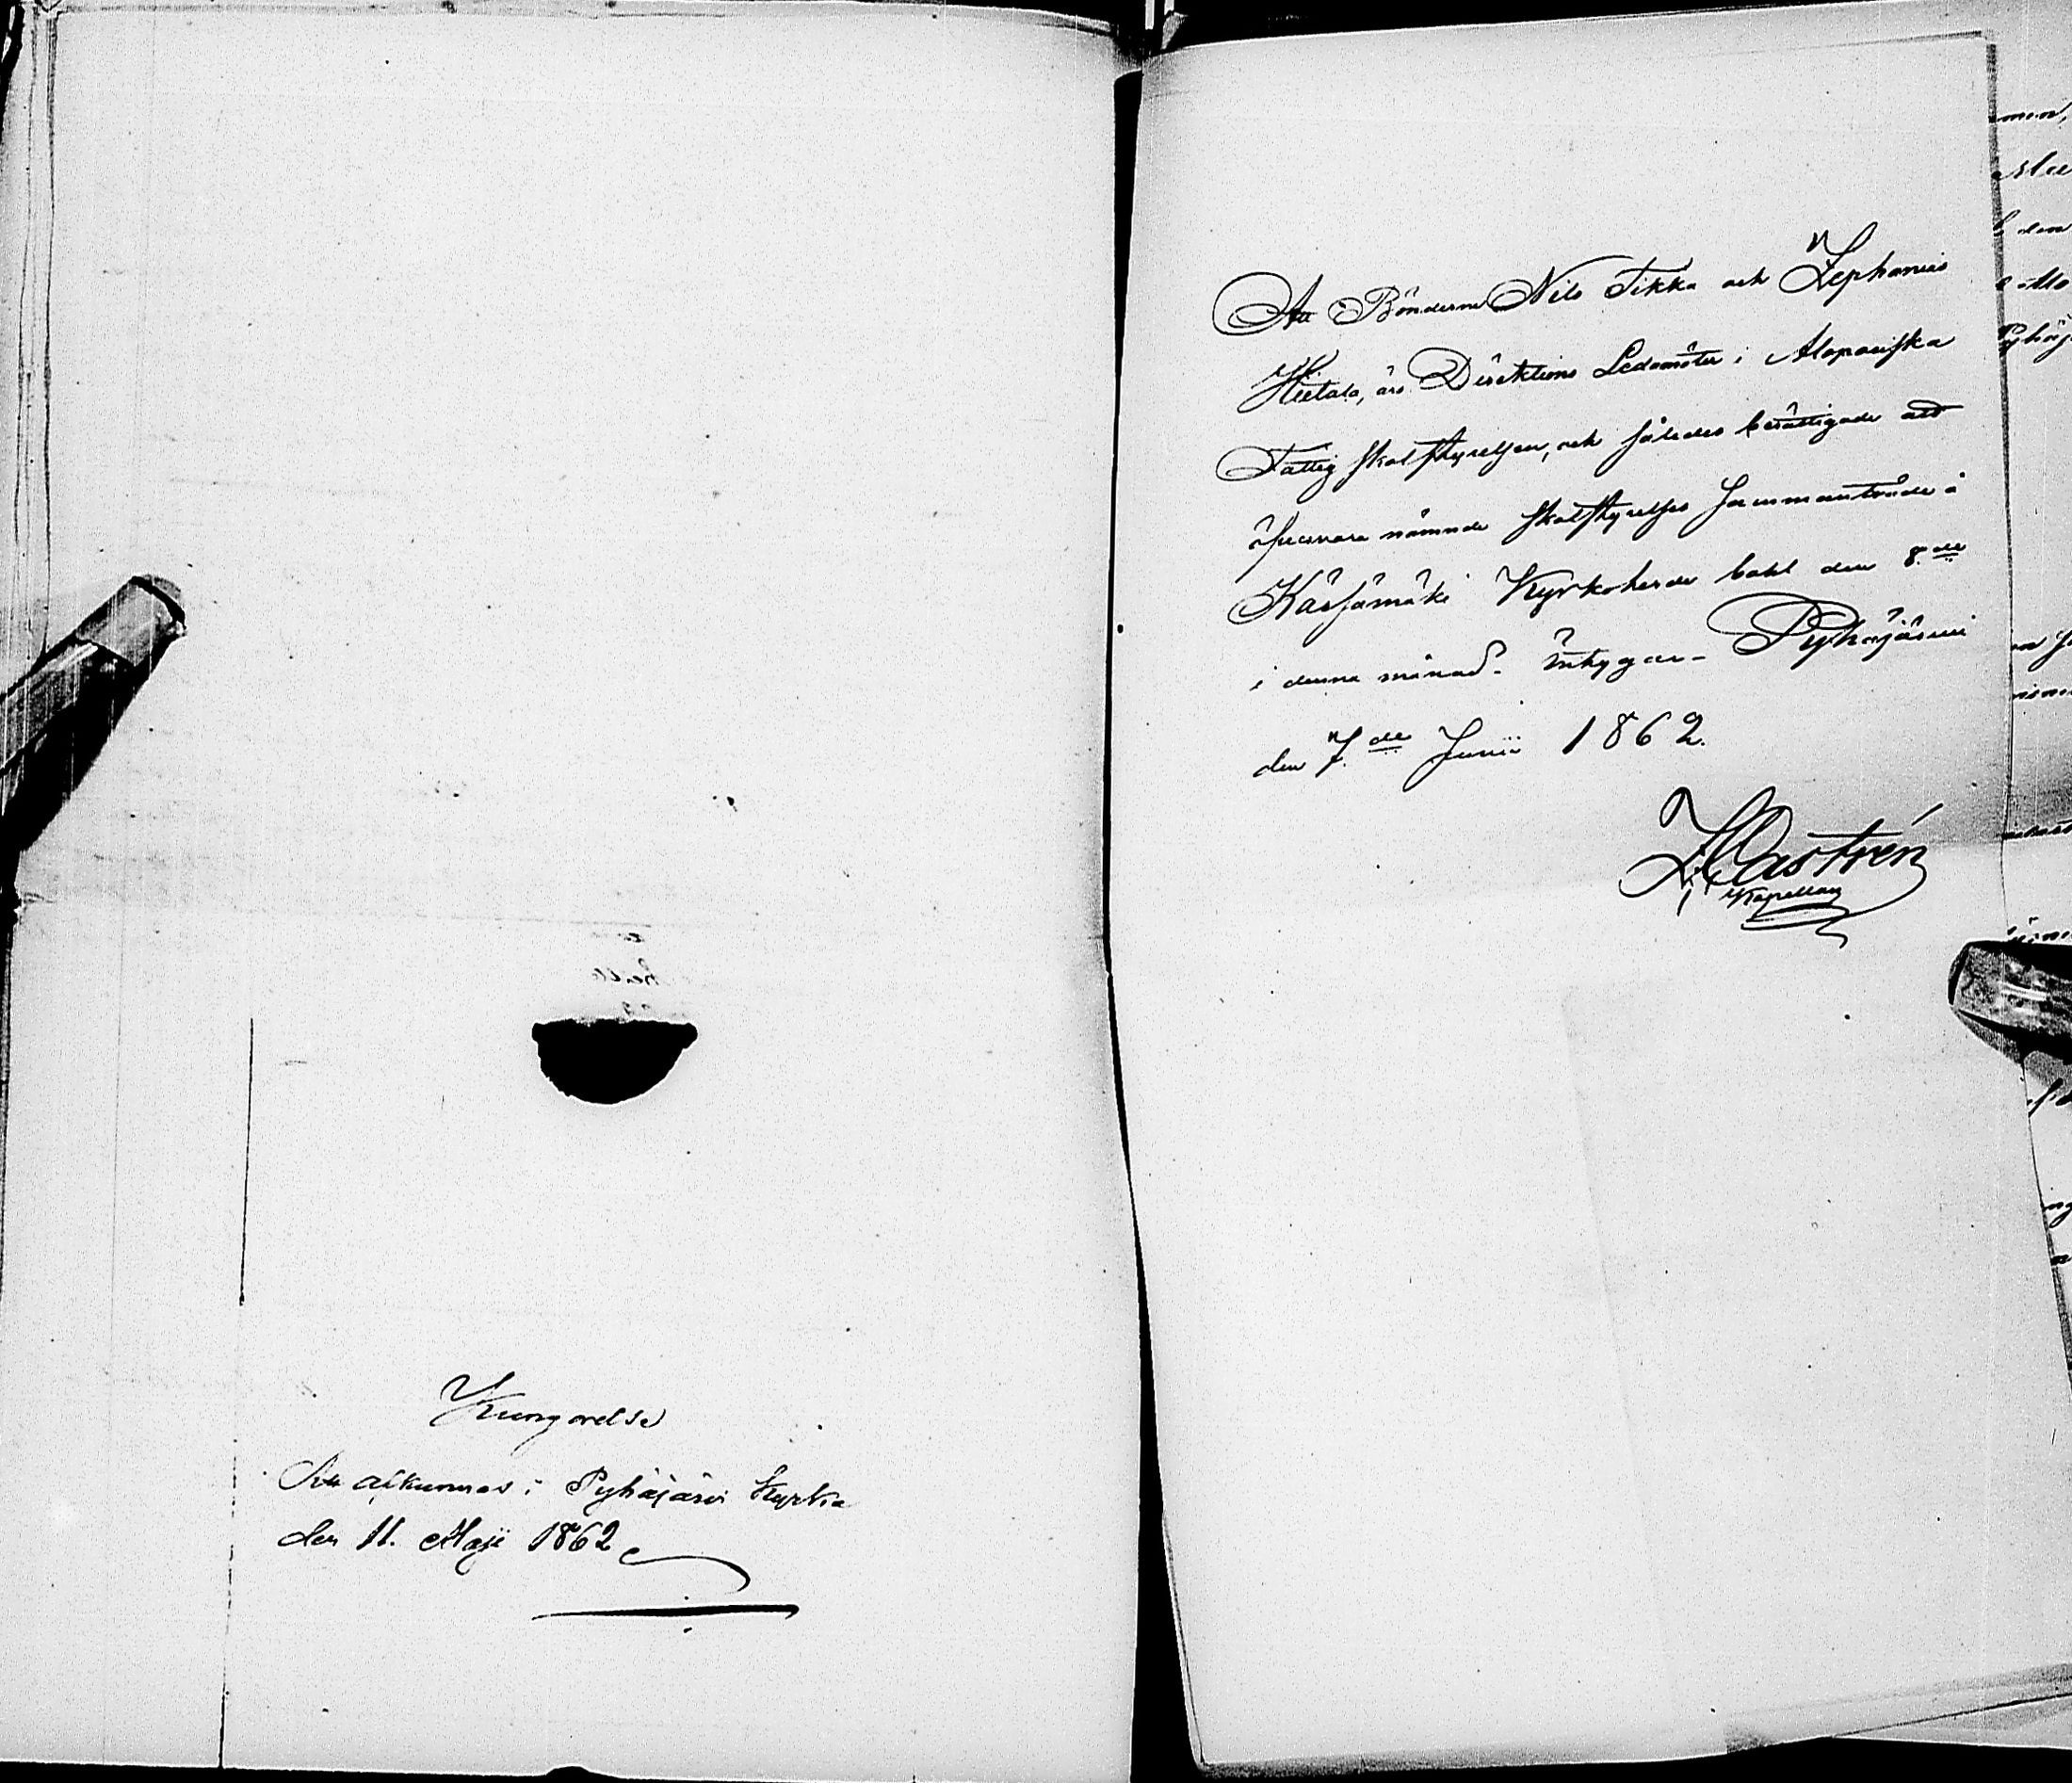 Kungorelse
Att afkunnas i Pyhäjärvi Kyrka
den 11. Maji 1862
Att Bönderne Nils Tikka och Zephanias
Hietala, äro Direktions Ledamöter i Alapaiska
Fattig skolstyrelsen, och således berättigade att
närvara nämnde skolstyrelses sammanträde å
Kärsämäki Kyrkoherde bohl den 8.de
i denna månad. Intygar. Pyhäjärvi
den 7.de Junii 1862.
Castrén
Kapellan